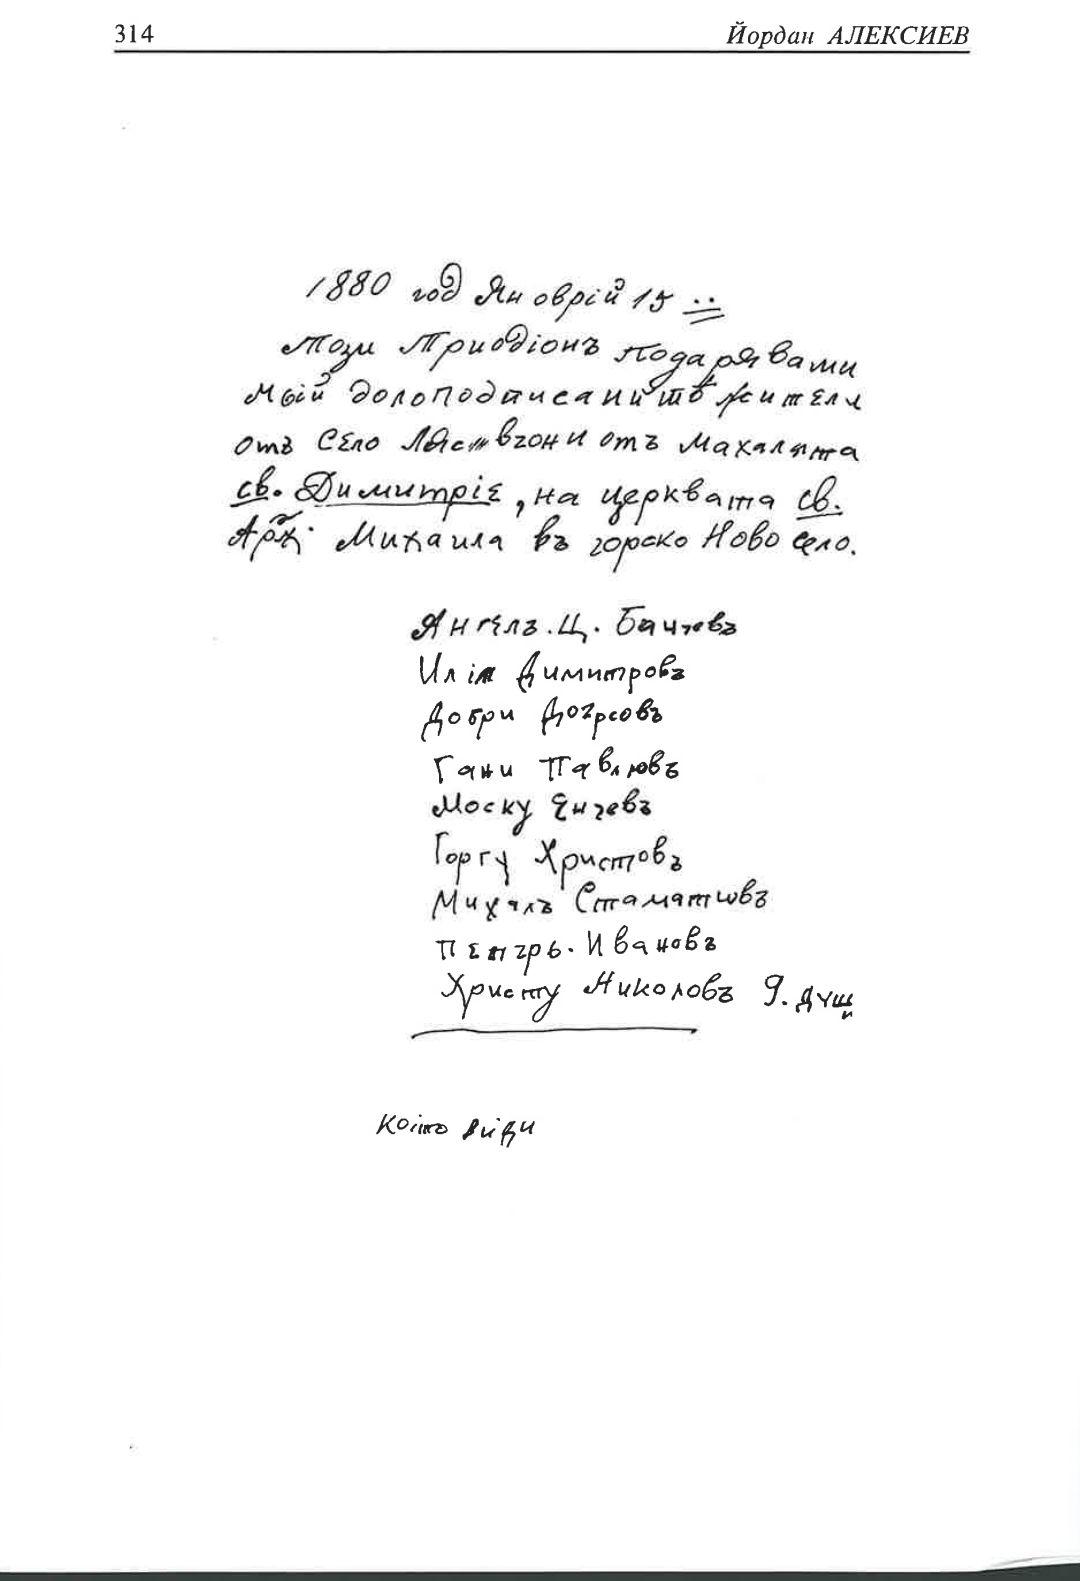 314 Йордан АЛЕКСИЕВ
1880 год Яноврій 15
Този Триодіонъ подарявами
мый долоподписанитѣ жители
отъ село от махалата
св. Димитріе, на церквата св.
Арх. Михаила въ горско Ново село.
Ангелъ. Ц. Банчевъ
Илія Димитровъ
Добри
Гани Павлювъ
Моску Янчевъ
Горгу Христовъ
Михалъ Стаматювъ
Ивановъ
Христу Николовъ 9. души